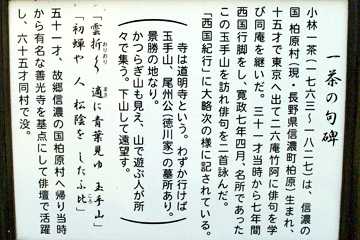 一茶の句碑
小林一茶(一七六三～一八二七)は、信濃の
国柏原村(現・長野県信濃町柏原)生まれ、
十五才で東京へ出て二六庵竹阿に俳句を学
び同庵を継いだ。三十一才当時から七年間
西国行脚をし、寛政七年四月、名所であった
この玉手山を訪れ俳句を二首詠んだ。
「西国紀行」に大略次の様に記されている。
寺は道明寺という。わずか行けば
玉手山、尾州公(徳川家)の墓所あり。
景勝の地なり。
かつらぎ山も見え、山で遊ぶ人が所
々で集う。下山して遠望す。
「雲折〱適に青葉見ゆ玉手山」
おりおり
たま
「初蝉や人松陰をしたふ比」
五十一才、故郷信濃の国柏原村へ帰り当時
から有名な善光寺を基点にして俳壇で活躍
し、六十五才同村で没。